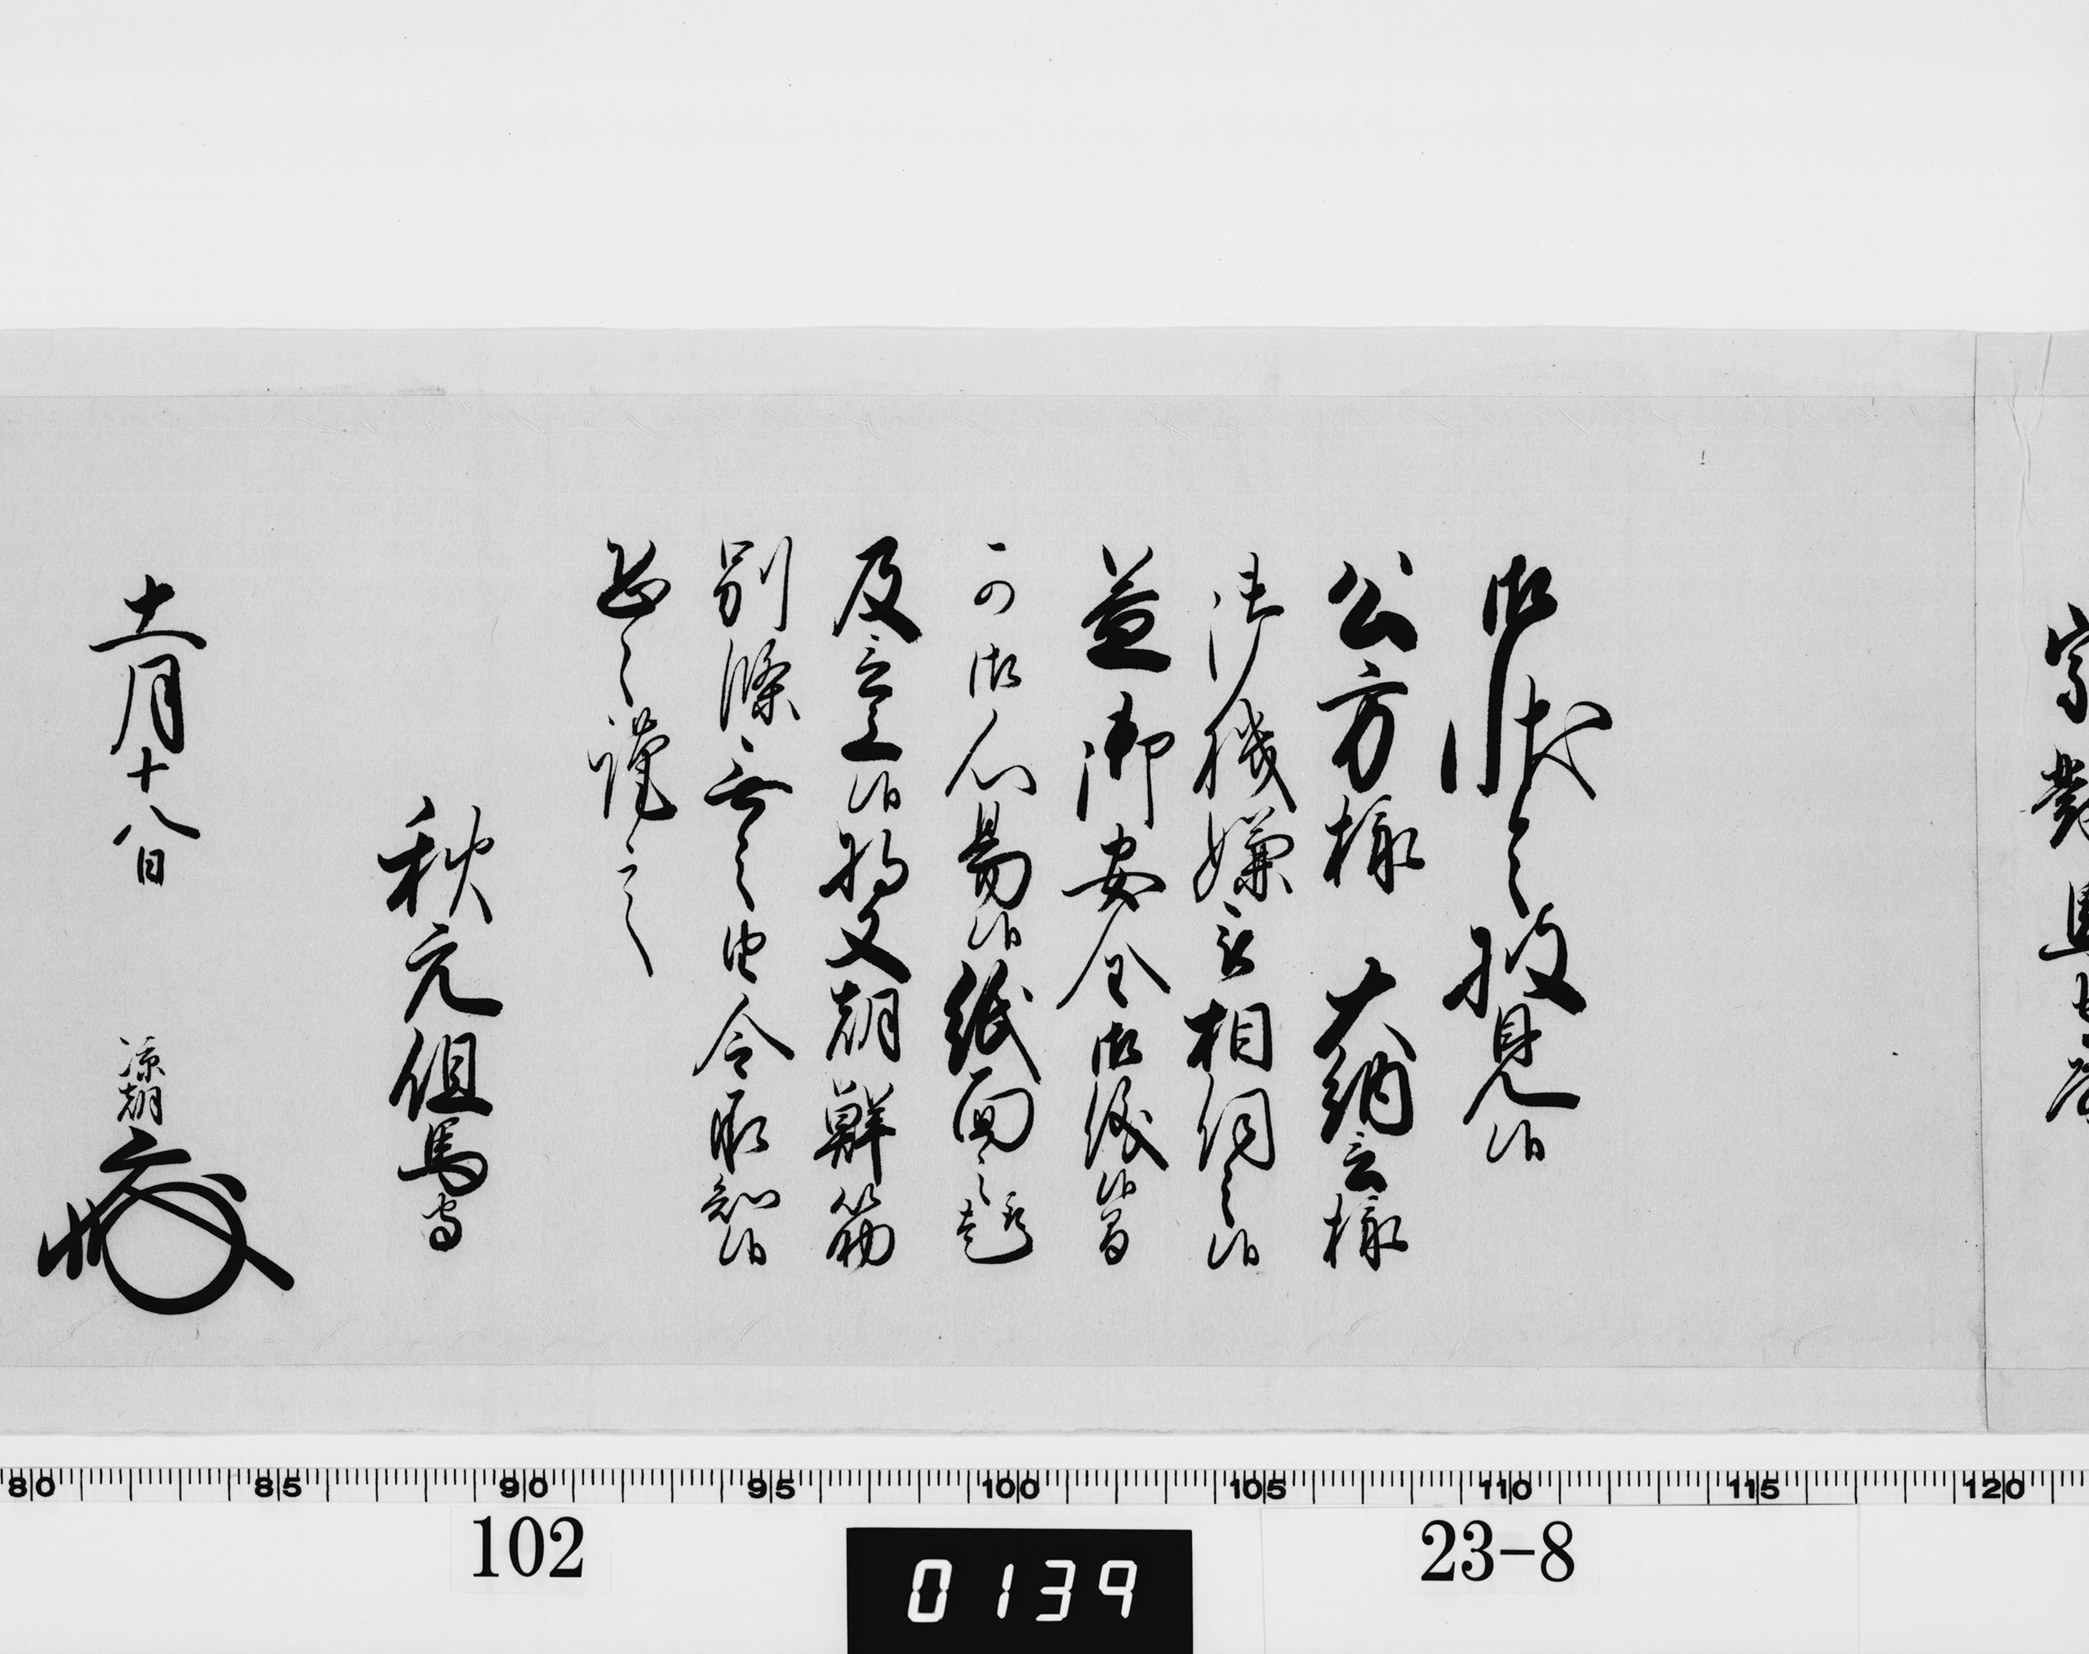 宗對馬守殿
御状令披見候
公方様 大納言様
御機嫌被相伺之候
益御安全御儀候間
可御心易候紙面之趣
及言上候将又朝鮮筋
別條無之由令承知候
恐々謹言
秋元但馬守
十一月十八日 涼朝
80 85 90 95 100 105 110 115 120
102 0139 23-8